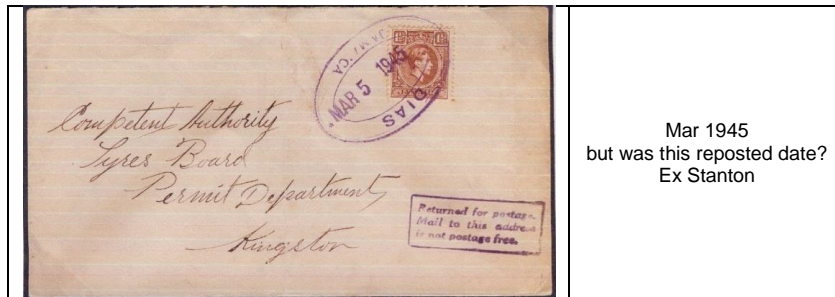 JAMAICA
MAR 5 1945
DIAS
Competent Authority
Tyres Board
Permit Department
Kingston
Returned for postage.
Mail to this address
is not postage free.
Mar 1945
but was this reposted date?
Ex Stanton